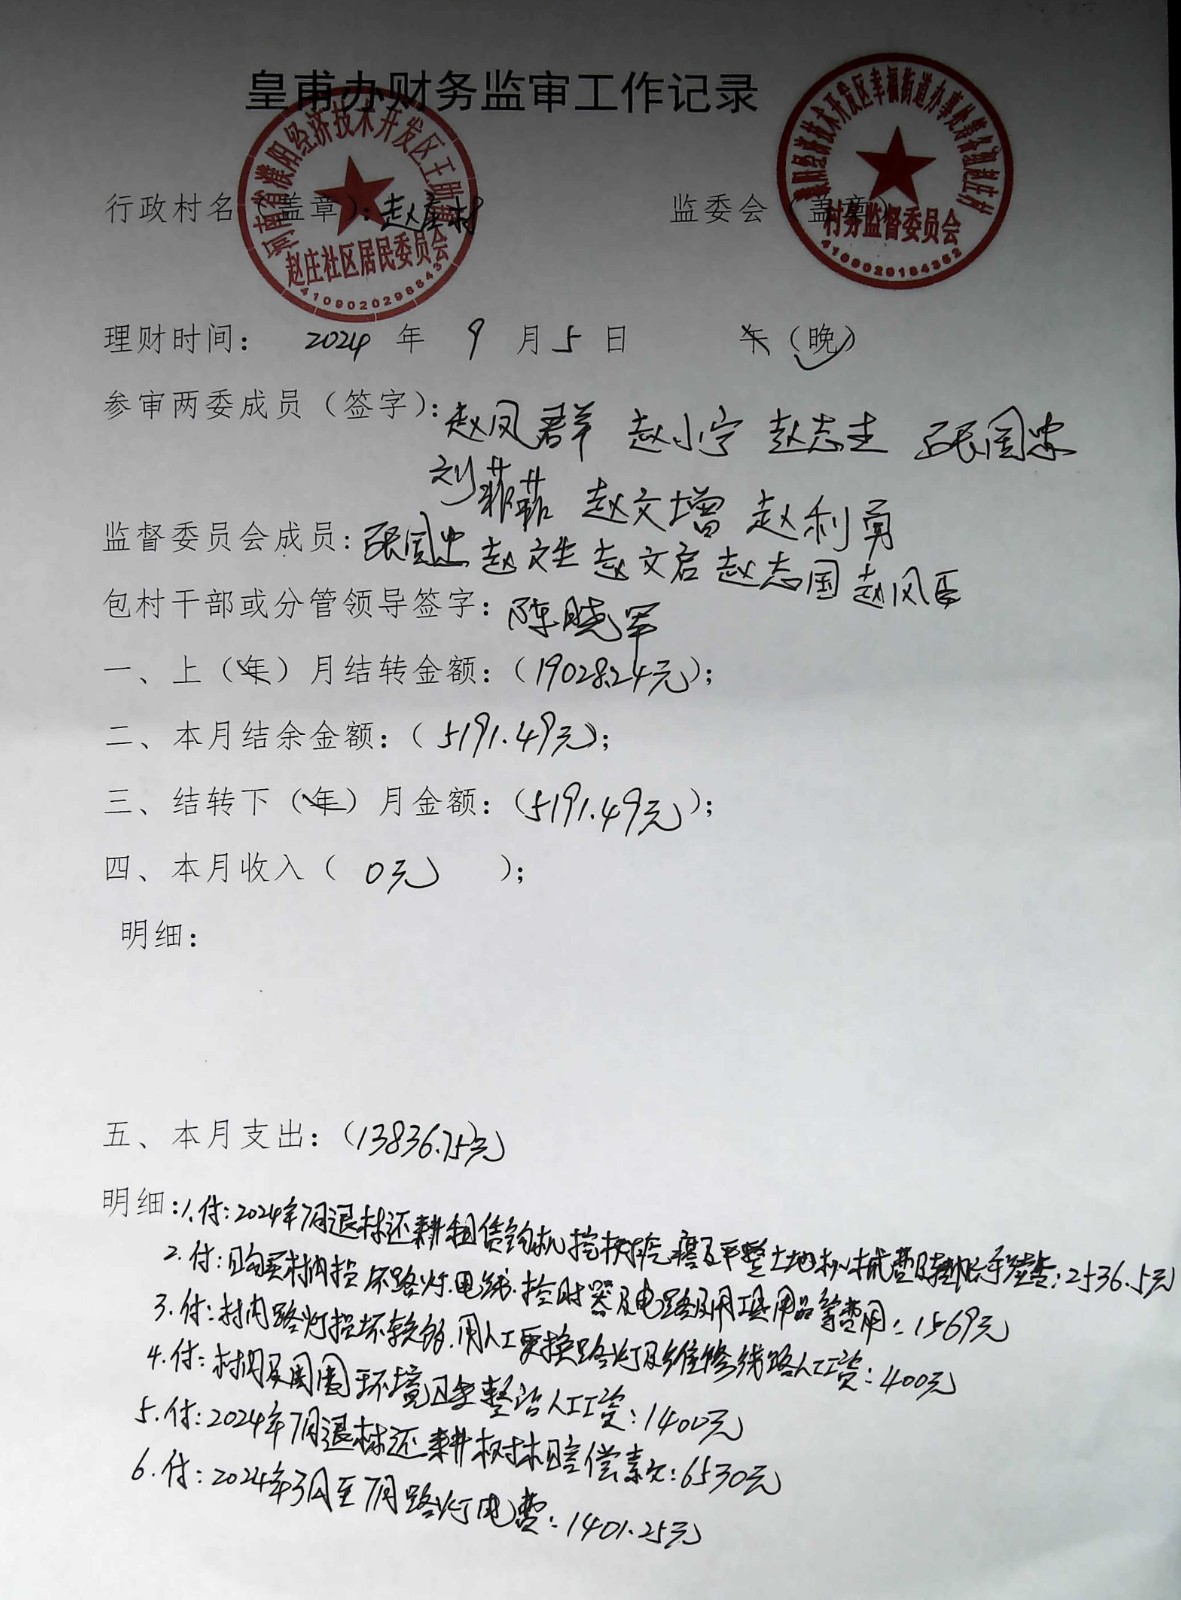 皇甫办财务监审工作记录
行政村名（盖章）：赵庄村 监委会（盖章）
河南省濮阳经济技术开发区王助
赵庄社区居民委员会
濮阳经济技术开发区幸福街道办事处筹备组赵庄村
村务监督委员会
4109020184362
理财时间： 2024 年 9 月 5 日 （晚）
参审两委成员（签字）：赵凤群 赵小宁 赵志主 张国忠
刘菲菲 赵文增 赵利勇
监督委员会成员：张国忠 赵文生 赵文启 赵志国 赵风臣
包村干部或分管领导签字：陈晓军
一、上（年）月结转金额：（19028.24元）；
二、本月结余金额：（5191.49元）；
三、结转下（年）月金额：（5191.49元）；
四、本月收入（ 0元 ）；
明细：
五、本月支出：（13836.75元
明细：1.付：2024年7月退林还耕租赁钩机挖树 平整土地机械费及 ：2536.5元
2.付：购买村内损坏路灯.电线.控时器及电路及用具用品等费用：1569元
3.付：村内路灯损坏较多.用人工更换路灯及维修线路人工资：400元
4.付：村内及周围环境日常整治人工资：1400元
5.付：2024年7月退林还耕树木赔偿款：6530元
6.付：2024年3月至7月路灯电费：1401.25元